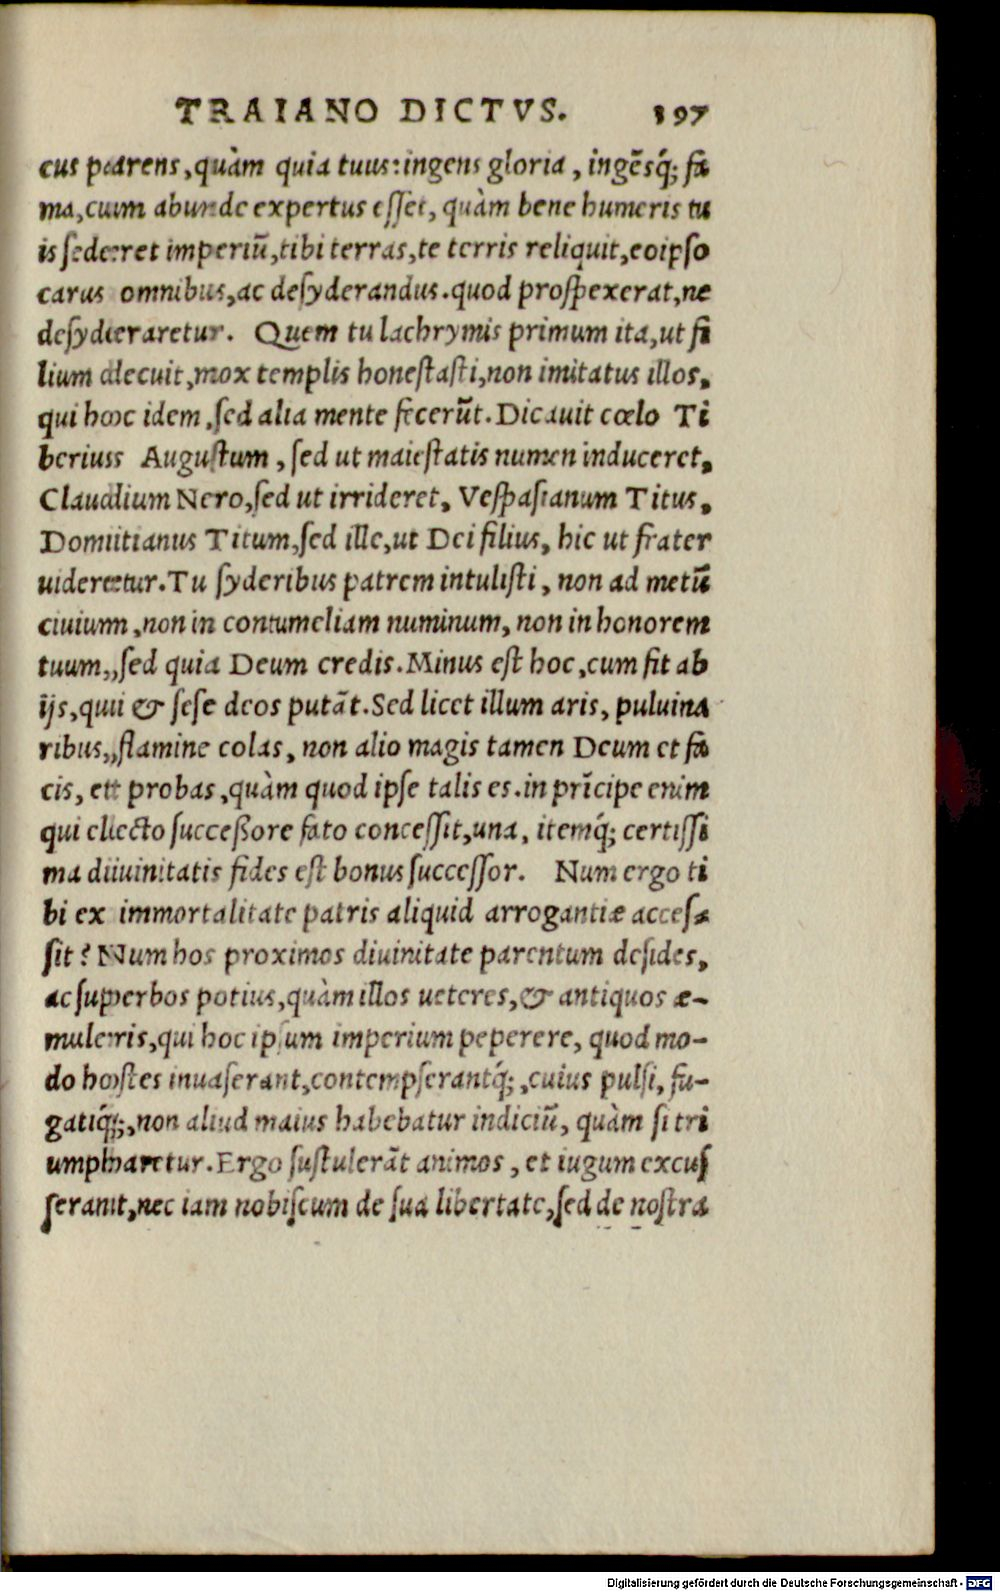 TRAIANO DICTVS. 197
cus parens, quàm quia tuus: ingens gloria, ingẽsq́; fa
ma, cum abunde expertus esset, quàm bene humeris tu
is sederet imperiũ, tibi terras, te terris reliquit, eo ipso
carus omnibus, ac desyderandus. quod prospexerat, ne
desyderaretur. Quem tu lachrymis primum ita, ut fi
lium decuit, mox templis honestasti, non imitatus illos,
qui hoc idem, sed alia mente fecerũt. Dicauit cœlo Ti
berius Augustum, sed ut maiestatis numen induceret,
Claudium Nero, sed ut irrideret, Vespasianum Titus,
Domitianus Titum, sed ille, ut Dei filius, hic ut frater
uideretur. Tu syderibus patrem intulisti, non ad metũ
ciuium, non in contumeliam numinum, non in honorem
tuum, sed quia Deum credis. Minus est hoc, cum fit ab
ijs, qui & sese deos putãt. Sed licet illum aris, puluina
ribus, flamine colas, non alio magis tamen Deum et fa
cis, et probas, quàm quod ipse talis es. in prĩcipe enim
qui electo successore fato concessit, una, itemq́; certissi
ma diuinitatis fides est bonus successor. Num ergo ti
bi ex immortalitate patris aliquid arrogantiæ acces-
sit? Num hos proximos diuinitate parentum desides,
ac superbos potius, quàm illos ueteres, & antiquos æ-
muleris, qui hoc ipsum imperium peperere, quod mo-
do hostes inuaserant, contempserantq́;, cuius pulsi, fu-
gatiq́;, non aliud maius habebatur indiciũ, quàm si tri
umpharetur. Ergo sustulerãt animos, et iugum excus
serant, nec iam nobiscum de sua libertate, sed de nostra
Digitalisierung gefördert durch die Deutsche Forschungsgemeinschaft - DFG